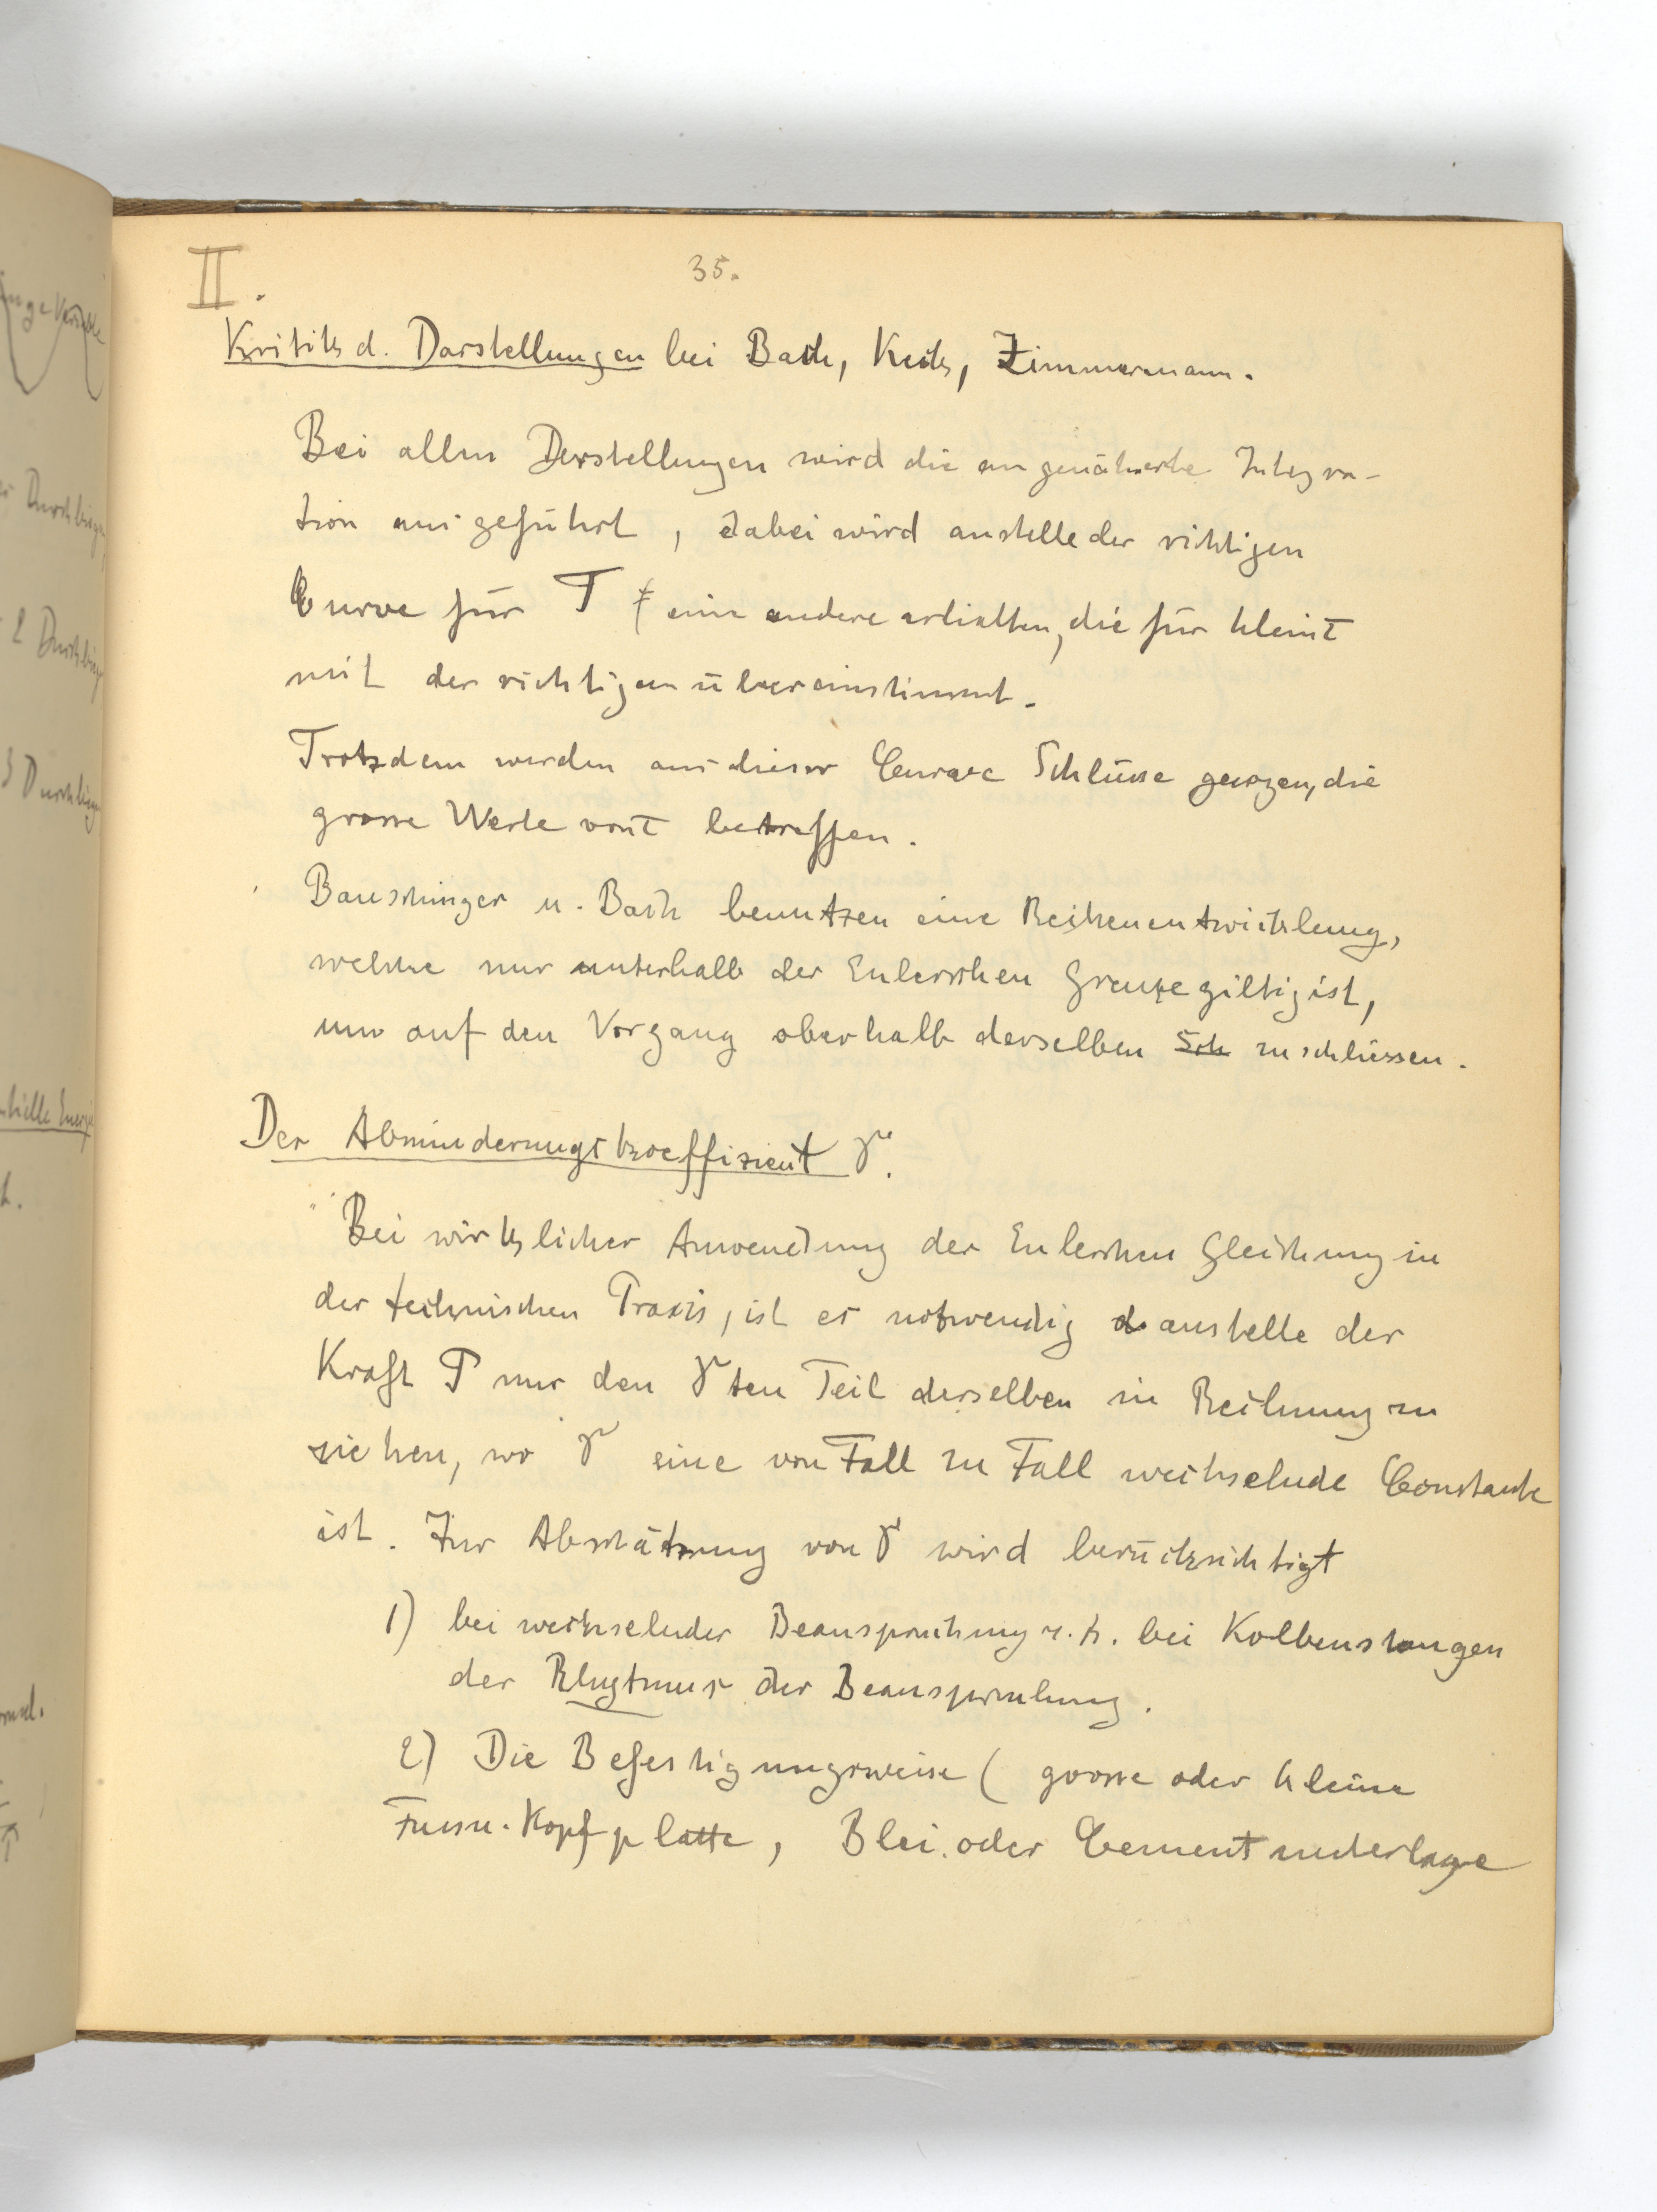 II.
35.
Kritik d. Darstellungen bei Bach, Keck, Zimmermann.
Bei allen Darstellungen wird die angenäherte Integra-
tion ausgeführt, dabei wird anstelle der richtigen
Curve für P eine andere erhalten, die für kleine τ
mit der richtigen übereinstimmt.
Trotzdem werden aus dieser Curve Schlüsse gezogen, die
grosse Werte von τ betreffen.
Bauschinger u. Bach benutzen eine Reihenentwicklung,
welche nur unterhalb der Eulerschen Grenze giltig ist,
um auf den Vorgang oberhalb derselben Sch zu schliessen.
Der Abminderungskoeffizient γ.
Bei wirklicher Anwendung der Eulerschen Gleichung in
der technischen Praxis, ist es notwendig anstelle der
Kraft P nur den γten Teil derselben in Rechnung zu
ziehen, wo γ eine von Fall zu Fall wechselnde Constante
ist. Zur Abschätzung von γ wird berücksichtigt
1) bei wechselnder Beanspruchung z. B. bei Kolbenstangen
der Rhytmus der Beanspruchung.
2) Die Befestigungsweise (grosse oder kleine
Fuss u. Kopfplatte, Blei oder Cementunterlage